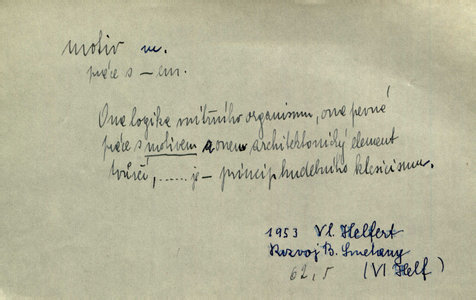 motiv m.
práce s -em.
Ona logika vnitřního organismu, ona pevná
práce s motivem a onen architektonický element
tvůrčí, ...... je - princip hudebního klasicismu.
1953 Vl. Helfert
Rozvoj B. Smetany
62, 5 (Vl Helf)